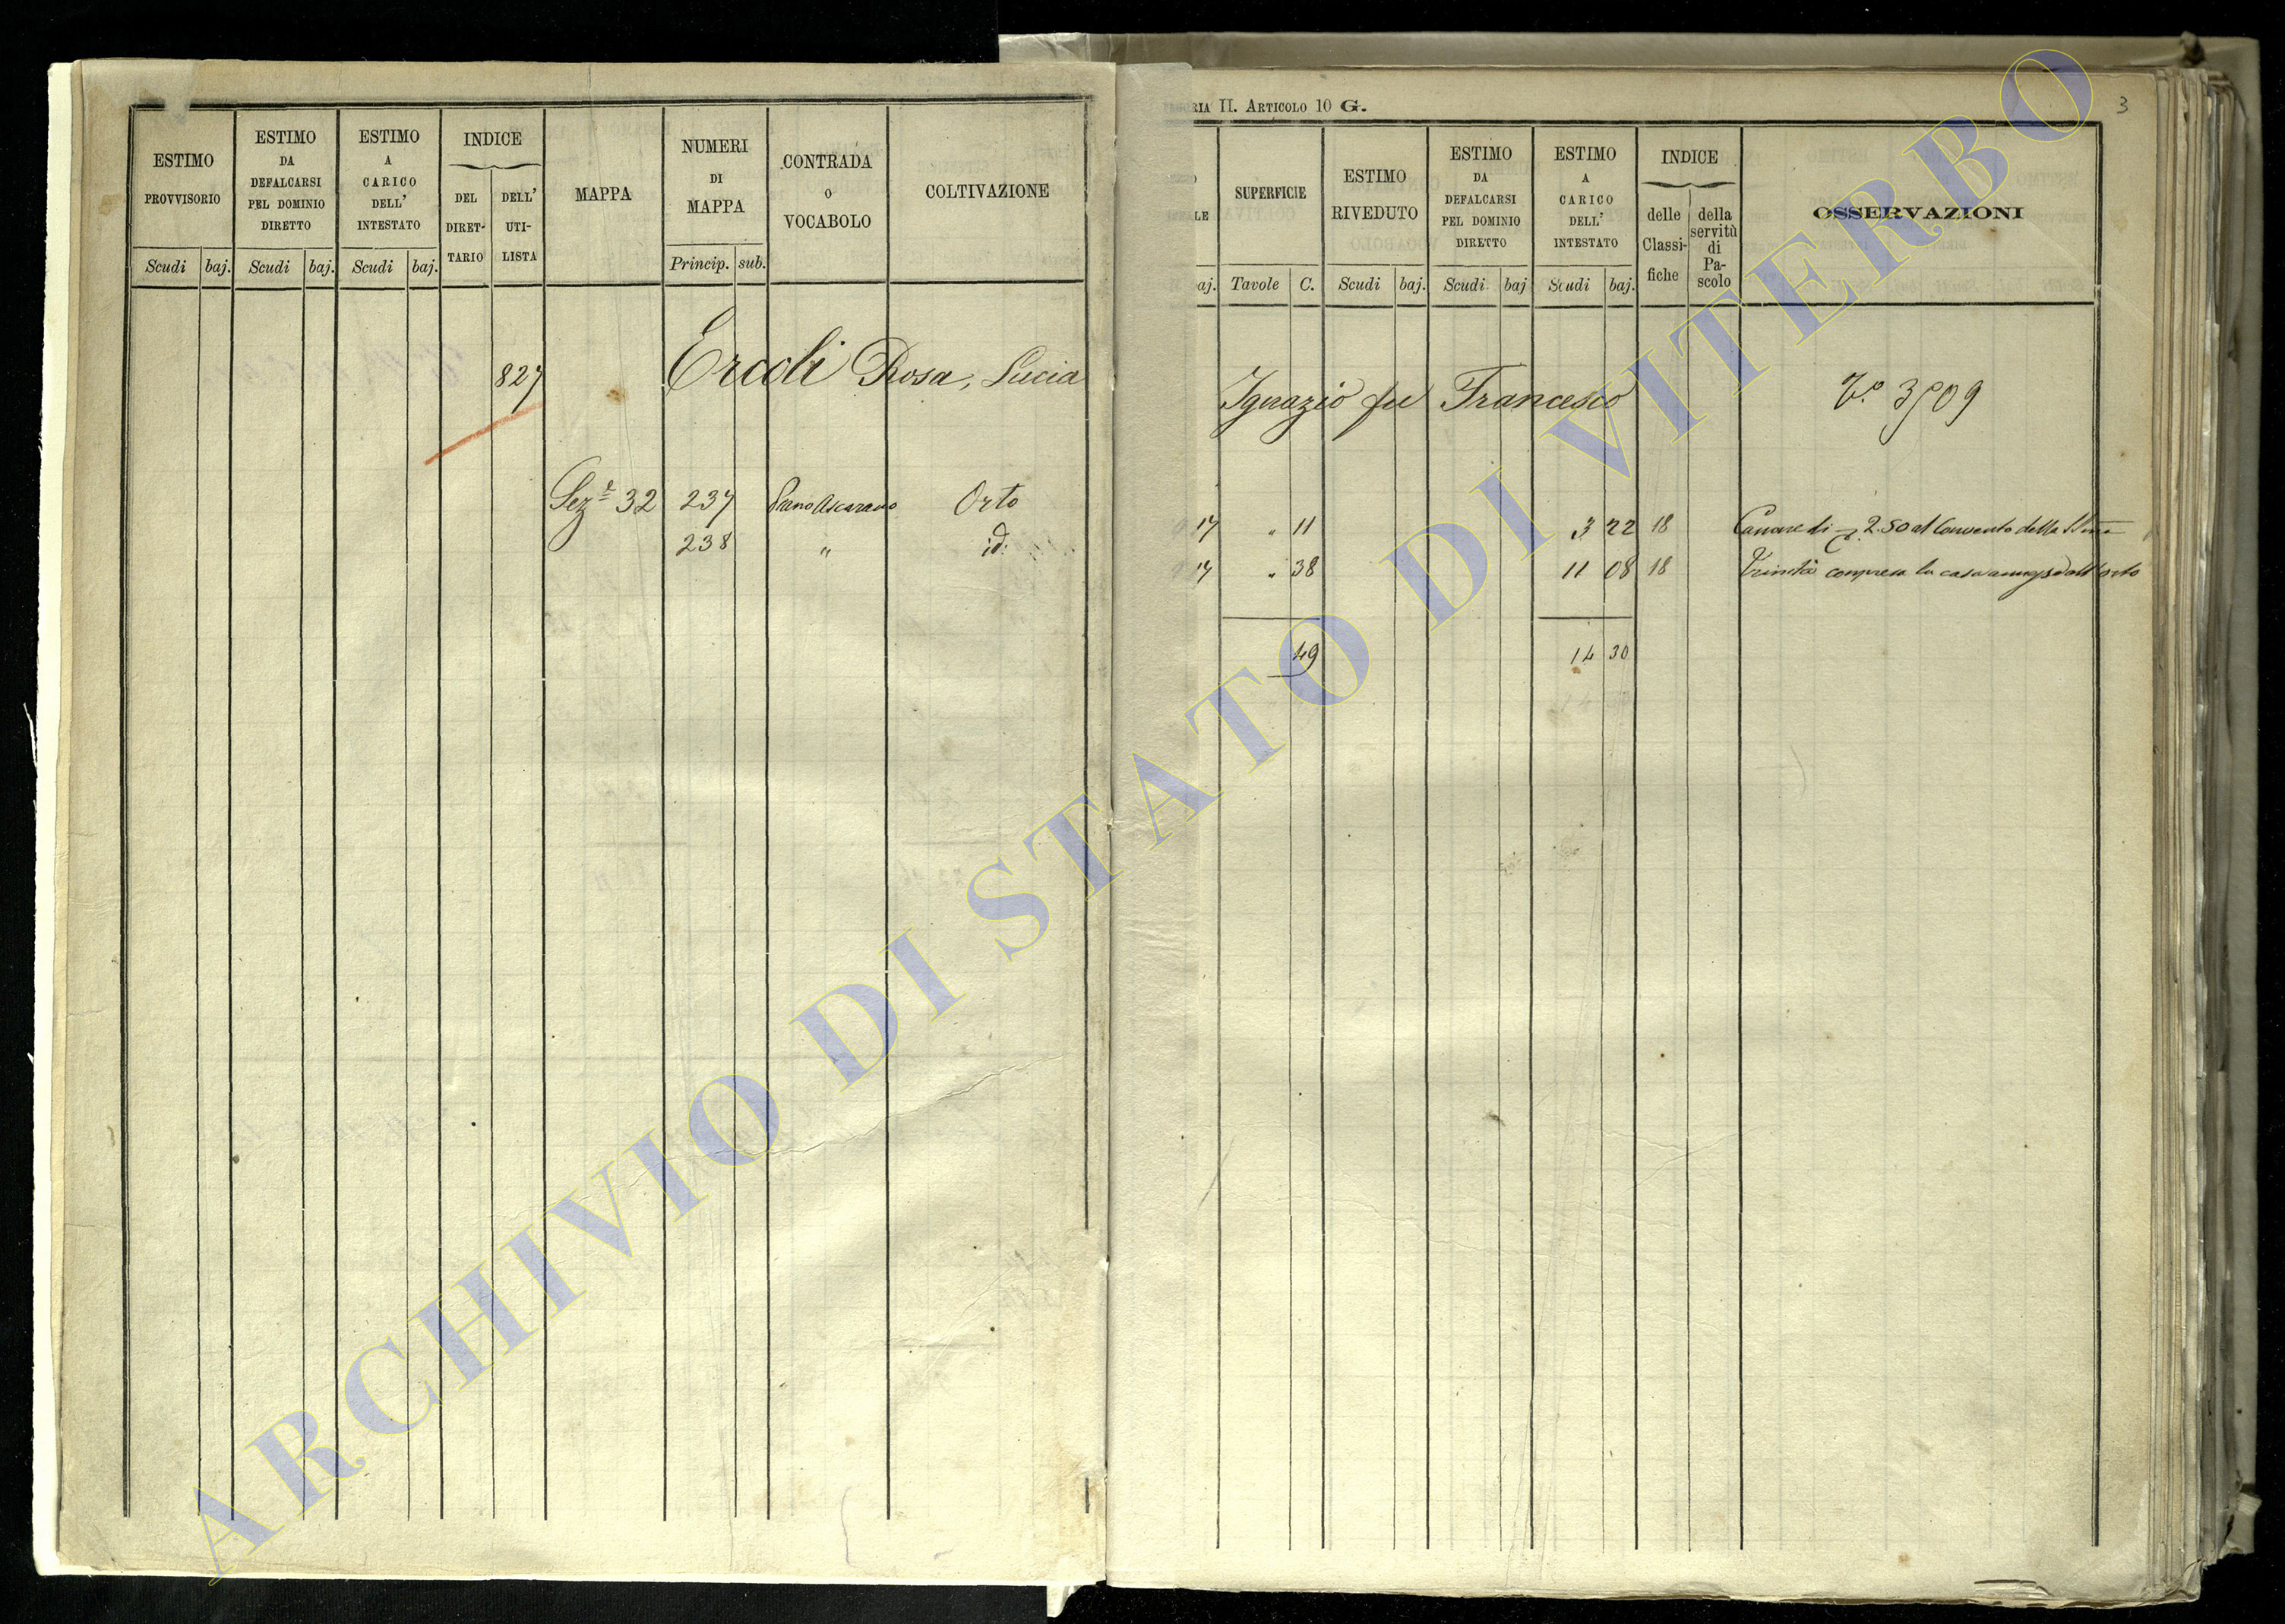 ESTIMO PROVVISORIO
Scudi baj.
ESTIMO DA DEFALCARSI PEL DOMINIO DIRETTO
Scudi baj.
ESTIMO A CARICO DELL' INTESTATO
Scudi baj.
INDICE
DEL DIRET-TARIO
DELL' UTI-LISTA
MAPPA
NUMERI DI MAPPA
Princip. sub.
CONTRADA O VOCABOLO
COLTIVAZIONE
827 Ercoli Rosa, Lucia
Sez.e 32 237 Piano Ascarano Orto
238 " id.
RIA II. ARTICOLO 10 G.
3
LE
aj.
SUPERFICIE
Tavole C.
ESTIMO RIVEDUTO
Scudi baj.
ESTIMO DA DEFALCARSI PEL DOMINIO DIRETTO
Scudi baj
ESTIMO A CARICO DELL' INTESTATO
Scudi baj.
INDICE
delle Classi-fiche
della servitù di Pa-scolo
OSSERVAZIONI
Ignazio fu Francesco
17 " 11 3 22 18 Canone di 2.50 al Convento della SSma
17 " 38 11 08 18 Trinità compresa la casa annessa all'orto
49 14 30
ARCHIVIO DI STATO DI VITERBO